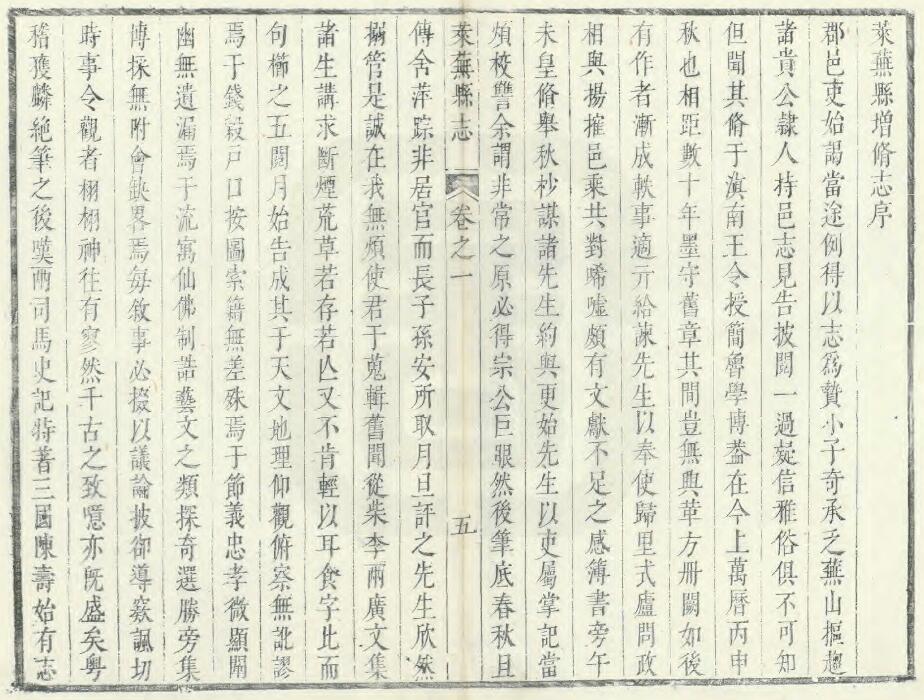 萊蕪縣增脩志序
郡邑吏始謁當途例得以志爲贄小子奇承乏蕪山摳趨
諸貴公隷人持邑志見告披閱一過疑信雅俗俱不可知
但聞其脩于滇南王令授簡魯學博葢在今上萬曆丙申
秋也相距數十年墨守舊章其間豈無興革方冊闕如後
有作者漸成軼事適亓給諫先生以奉使歸里式廬問政
相與揚搉邑乘共對唏噓頗有文獻不足之感簿書旁午
未皇脩舉秋杪謀諸先生約與更始先生以吏屬掌記當
煩校讐余謂非常之原必得宗公巨眼然後筆底春秋且
萊蕪縣志 卷之一 五
傳舍萍踪非居官而長子孫安所取月旦評之先生欣然
搦管是誠在我無煩使君于蒐輯舊聞從柴李兩廣文集
諸生講求斷煙荒草若存若亾又不肯輕以耳食字比而
句櫛之五閱月始告成其于天文地理仰觀俯察無訛謬
焉于錢穀戸口按圖索籍無差殊焉于節義忠孝微顯闡
幽無遺漏焉于流寓仙佛制誥藝文之類探奇選勝旁集
博採無附會缺畧焉每敘事必掇以議論披卻導窾諷切
時事令觀者栩栩神往有寥然千古之致噫亦旣盛矣粤
稽獲麟絶筆之後嘆兩司馬史記特著三國陳壽始有志